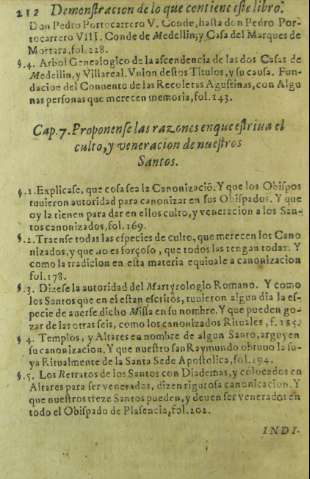 212 Demonstracion de lo que contiene este libro.
Don Pedro Portocarrero V. Conde, hasta don Pedro Por-
tocarrero VIII. Conde de Medellin, y Casa del Marques de
Mortara, fol. 228.
§. 4. Arbol Genealogico de la ascendencia de las dos Casas de
Medellin, y Villareal. Vnion destos Titulos, y su causa. Fun-
dacion del Conuento de las Recoletas Agustinas, con Algu
nas personas que merecen memoria, fol. 143.
Cap. 7. Proponense las razones en que estriua el
culto, y veneracion de nuestros
Santos.
§. 1. Explicase, que cosa sea la Canonizació. Y que los Obispos
tuuieron autoridad para canonizar en sus Obispados. Y que
oy la tienen para dar en ellos culto, y veneracion a los San-
tos canonizados, fol. 169.
§. 2. Traense todas las especies de culto, que merecen los Cano
nizados, y que no es forçoso, que todos las tengan todas. Y
como la tradicion en esta materia equiuale a canonizacion
fol. 178.
§. 3. Dizese la autoridad del Martyrologio Romano. Y como
los Santos que en el estan escritos, tuuieron algun dia la es-
pecie de auerse dicho Missa en su nombre. Y que pueden go-
zar de las otras seis, como los canonizados Rituales, f. 185.
§ 4. Templos, y Altares en nombre de algun Santo, arguyen
su canonizacion. Y que nuestro san Raymundo obtuuo la su-
ya Ritualmente de la Santa Sede Apostolica, fol. 194.
§. 5. Los Retratos de los Santos con Diademas, y colocados en
Altares para ser venerados, dizen rigurosa canonicacion. Y
que nuestros treze Santos pueden, y deuen ser venerados en
todo el Obispado de Plasencia, fol. 202.
INDI-